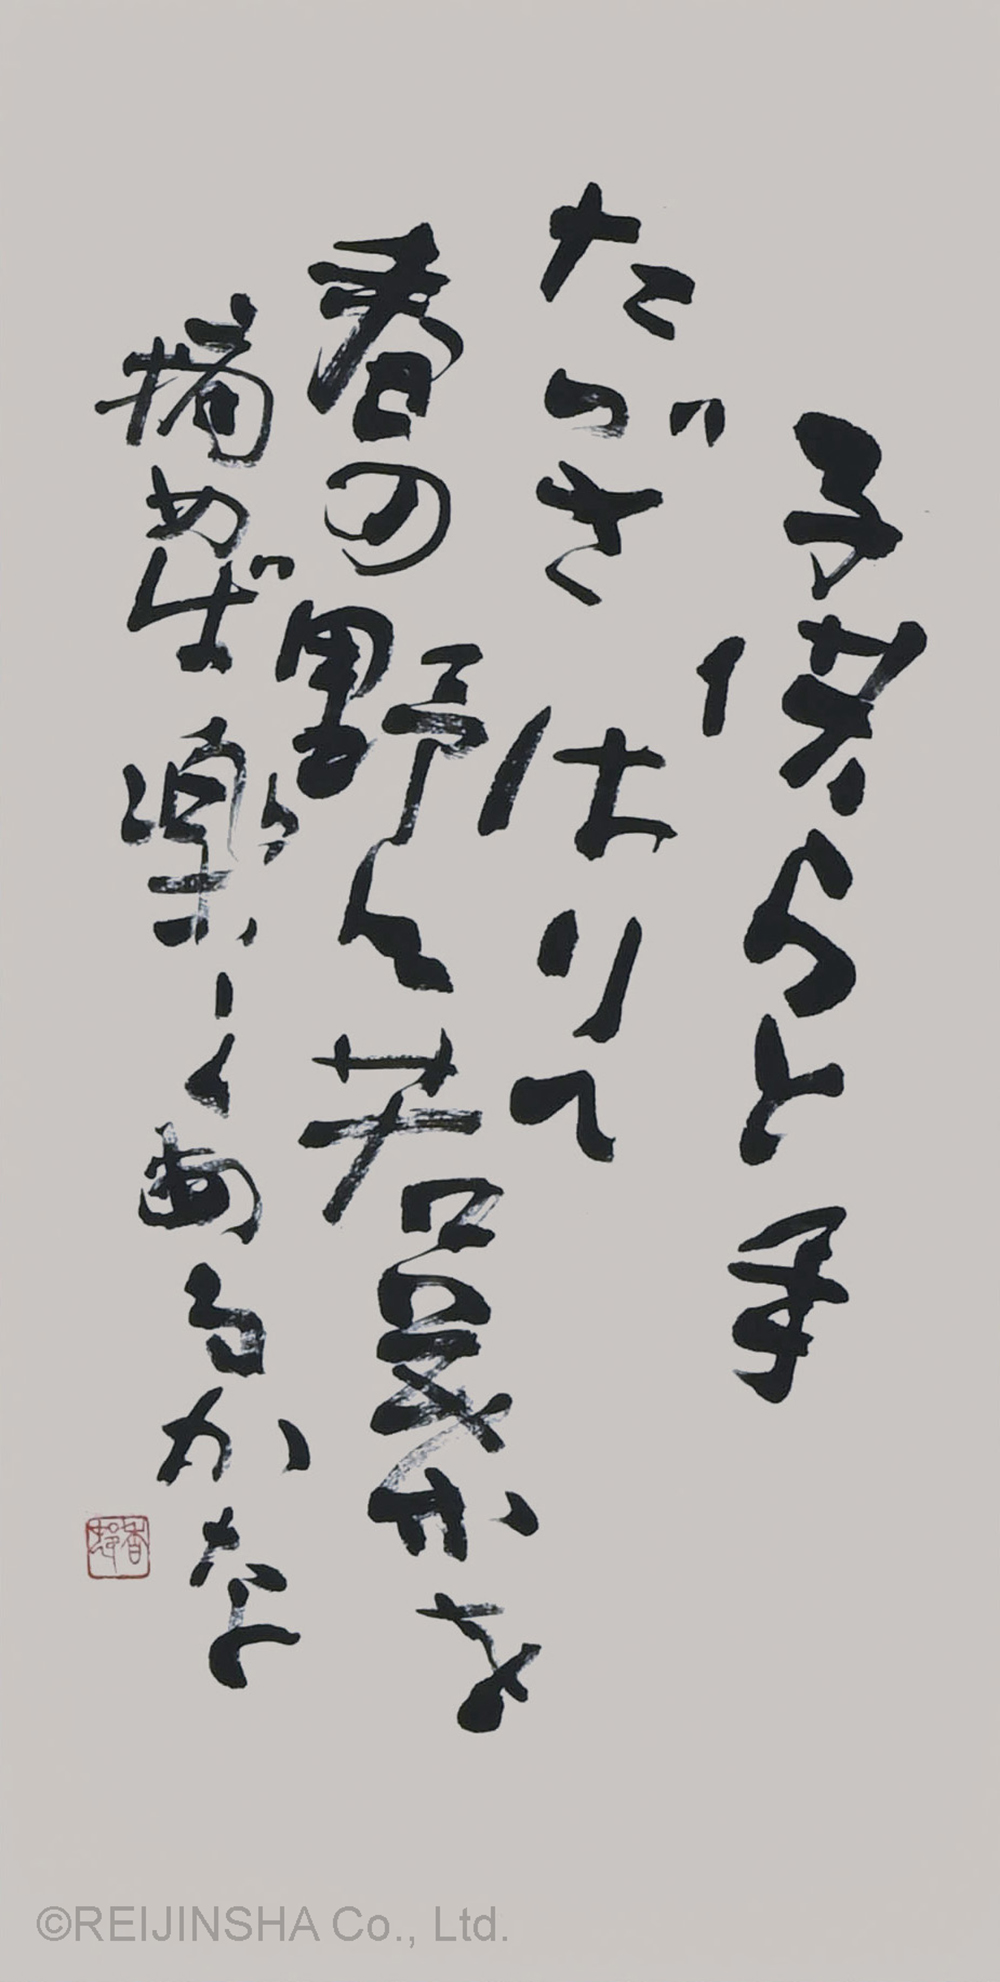 子供らと手
たづさはりて
春の野に若菜を
摘めば楽しくあるかな
©REIJINSHA Co., Ltd.